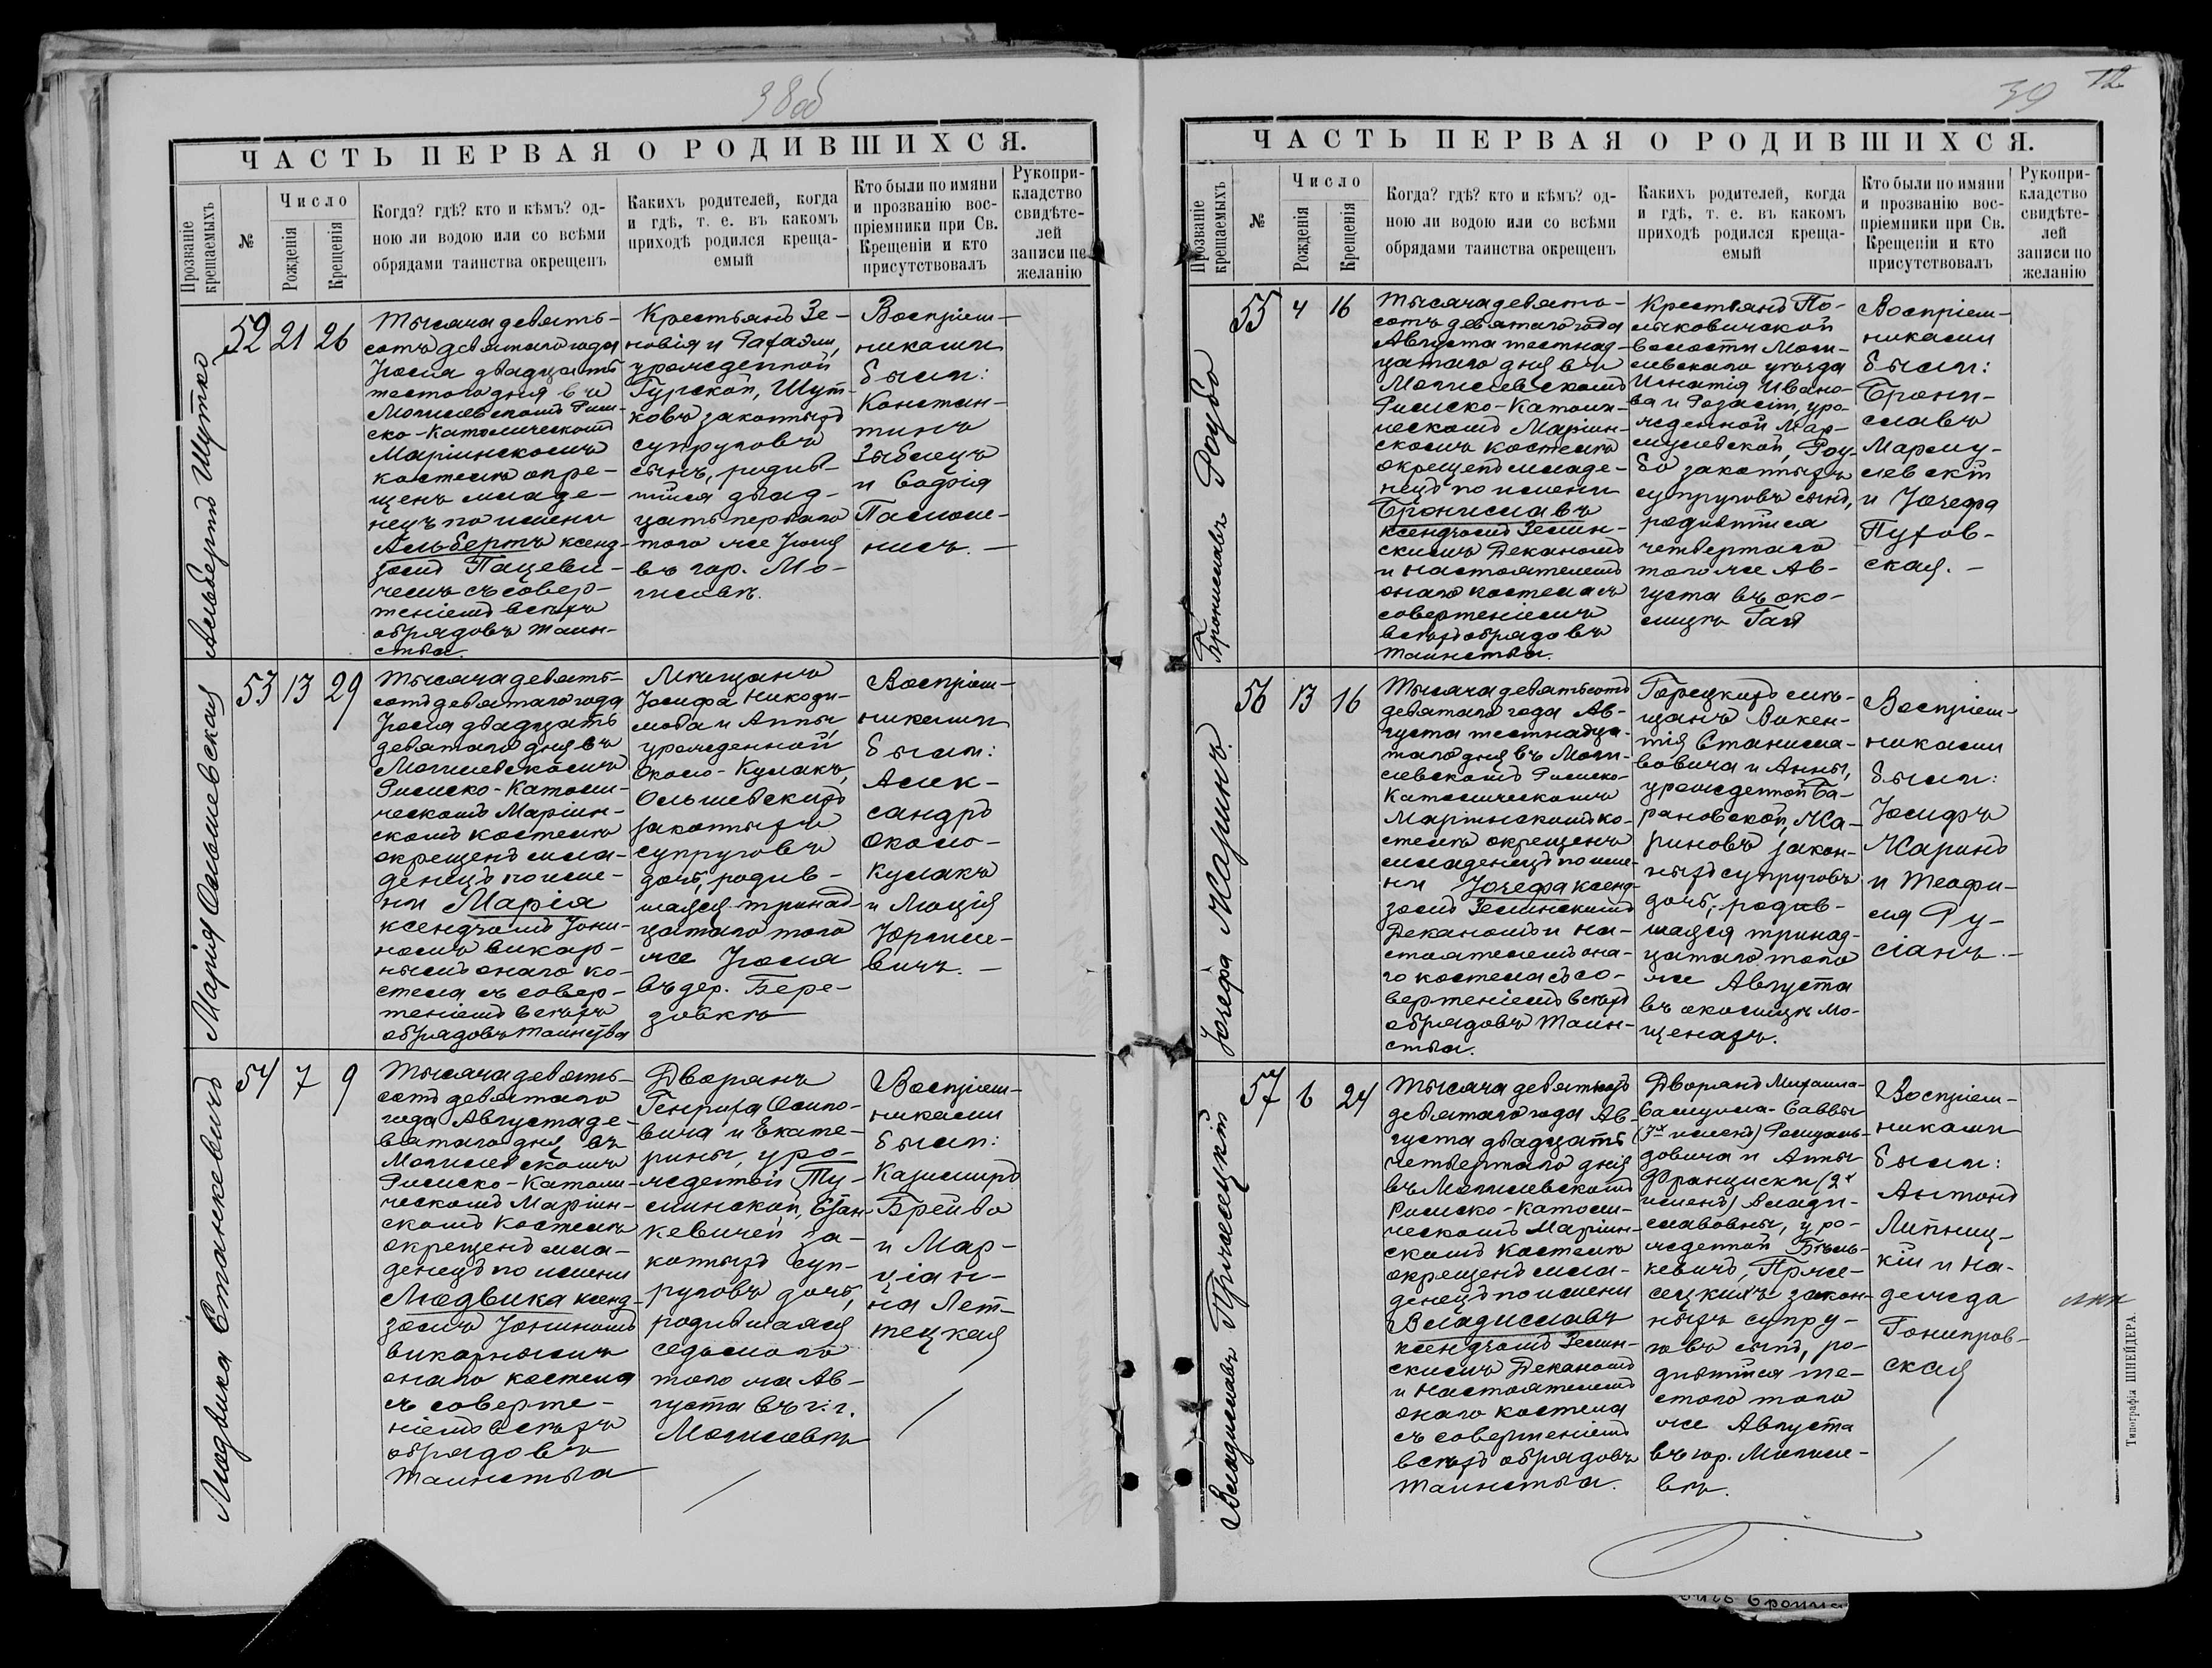 38об
ЧАСТЬ ПЕРВАЯ О РОДИВШИХСЯ.
Прозваніе крещаемыхъ
№
Число
Рожденія
Крещенія
Когда? гдѣ? кто и кѣмъ? од-
ною ли водою или со всѣми
обрядами таинства окрещенъ
Каихъ родителей, когда
и гдѣ, т. е. въ какомъ
приходѣ родился креща-
емый
Кто были по имяни
и прозванію вос-
пріемники при Св.
Крещеніи и кто
присутствовалъ
Рукопри-
кладство
свидѣте-
лей
записи по
желанію
Альбертъ Шутко
52 21 26
Тысяча девять-
сотъ девятаго года
Іюля двадцать
шестого дня въ
Могилевскомъ Рим-
ско-Католическомъ
Маріинскомъ
костелѣ окре-
щенъ младе-
нецъ по имени
Альбертъ ксенд-
зомъ Пацеви-
чемъ съ совер-
шеніемъ всѣхъ
обрядовъ таин-
ства.
Крестьянъ Зе-
новія и Рафаэли,
урожденной
Гурской, Шут-
ковъ законныхъ
супруговъ
сынъ, родив-
шійся двад-
цать перваго
того же Іюля
въ гор. Мо-
гилевѣ.
Воспріем-
никами
были:
Констан-
тинъ
Зыблецъ
и Софія
—
Марія Ольшевская
53 13 29
Тысяча девять-
сотъ девятаго года
Іюля двадцать
девятаго дня въ
Могилевскомъ
Римско-Католи-
ческомъ Маріин-
скомъ костелѣ
окрещенъ мла-
денецъ по име-
ни Марія
ксендзомъ Іони-
номъ викар-
нымъ онаго ко-
стела съ совер-
шеніемъ всѣхъ
обрядовъ таинства
Мѣщанъ
Іосифа Никоди-
мова и Анны,
урожденной
Около-Кулакъ,
Ольшевскихъ
законныхъ
супруговъ
дочь, родив-
шаяся тринад-
цатаго того
же Іюля
въ дер. Бере-
зовкѣ
Воспріем-
никами
были:
Алек-
сандръ
Около-
Кулакъ
и Люція
Юргиле-
вичъ. —
Людвика Станкевичъ
54 7 9
Тысяча девять-
сотъ девятаго
года Августа де-
вятаго дня въ
Могилевскомъ
Римско-Католи-
ческомъ Маріин-
скомъ костелѣ
окрещенъ мла-
денецъ по имени
Людвика ксенд-
зомъ Іонинымъ
викарнымъ
онаго костела
съ соверше-
ніемъ всѣхъ
обрядовъ
таинства
Дворянъ
Генриха Осипо-
вича и Екате-
рины, уро-
жденной Ту-
линской, Стан-
кевичей за-
конныхъ суп-
руговъ дочь,
родившаяся
седьмого
того же Ав-
густа въ г.г.
Могилевѣ
Воспріем-
никами
были:
Казимиръ
Брейво
и Мар-
ціан-
на Лет-
тецкая
39 12
ЧАСТЬ ПЕРВАЯ О РОДИВШИХСЯ.
Прозваніе крещаемыхъ
№
Число
Рожденія
Крещенія
Когда? гдѣ? кто и кѣмъ? од-
ною ли водою или со всѣми
обрядами таинства окрещенъ
Какихъ родителей, когда
и гдѣ, т. е. въ какомъ
приходѣ родился креща-
емый
Кто были по имяни
и прозванію вос-
пріемники при Св.
Крещеніи и кто
присутствовалъ
Рукопри-
кладство
свидѣте-
лей
записи по
желанію
Брониславъ Роубо
55 4 16
Тысяча девять-
сотъ девятаго года
Августа шестнад-
цатаго дня въ
Могилевскомъ
Римско-Католи-
ческомъ Маріин-
скомъ костелѣ
окрещенъ младе-
нецъ по имени
Брониславъ
ксендзомъ Зелин-
скимъ Деканомъ
и настоятелемъ
онаго костела съ
совершеніемъ
всѣхъ обрядовъ
таинства.
Крестьянъ По-
лыковичской
волости Моги-
левскаго уѣзда
Игнатія Ивано-
ва и Розаліи, уро-
жденной Мар-
цулевской, Роу-
бо законныхъ
супруговъ сынъ,
родившійся
четвертаго
того же Ав-
густа въ око-
лицѣ Гай
Воспріем-
никами
были:
Брони-
славъ
Марцу-
левскій
и Іозефа
Пухов-
ская. —
Іозефа Жаринъ.
56 13 16
Тысяча девятьсотъ
девятаго года Ав-
густа шестнадца-
таго дня въ Моги-
левскомъ Римско-
Католическомъ
Маріинскомъ ко-
стелѣ окрещенъ
младенецъ по име-
ни Іозефа ксенд-
зомъ Зелинскимъ
Деканомъ и на-
стоятелемъ она-
го костела съ со-
вершеніемъ всѣхъ
обрядовъ таин-
ства.
Горецкихъ мѣ-
щанъ Викен-
тія Станисла-
вовича и Анны,
урожденной Ба-
рановской, Жа-
риновъ закон-
ныхъ супруговъ
дочь, родив-
шаяся тринад-
цатаго того
же Августа
въ околицѣ Мо-
щенахъ.
Воспріем-
никами
были:
Іосифъ
Жаринъ
и Теофи-
лія Ру-
сіанъ. —
Владиславъ Пржесецкій
57 6 24
Тысяча девятьсотъ
девятаго года Ав-
густа двадцать
четвертаго дня
въ Могилевскомъ
Римско-Католи-
ческомъ Маріин-
скомъ костелѣ
окрещенъ мла-
денецъ по имени
Владиславъ
ксендзомъ Зелин-
скимъ Деканомъ
и настоятелемъ
онаго костела
съ совершеніемъ
всѣхъ обрядовъ
таинства.
Дворянъ Михаила-
Самуила-Саввы
(3х именъ) Ромуаль-
довича и Анны
Франциски (2х
именъ) Влади-
славовны, уро-
жденной Бѣль-
кевичъ, Прже-
сецкихъ закон-
ныхъ супру-
говъ сынъ, ро-
дившійся ше-
стого того
же Августа
въ гор. Могиле-
вѣ.
Воспріем-
никами
были:
Антонъ
Липниц-
кій и На-
дежда
ская
Типографія ШНЕЙДЕРА.